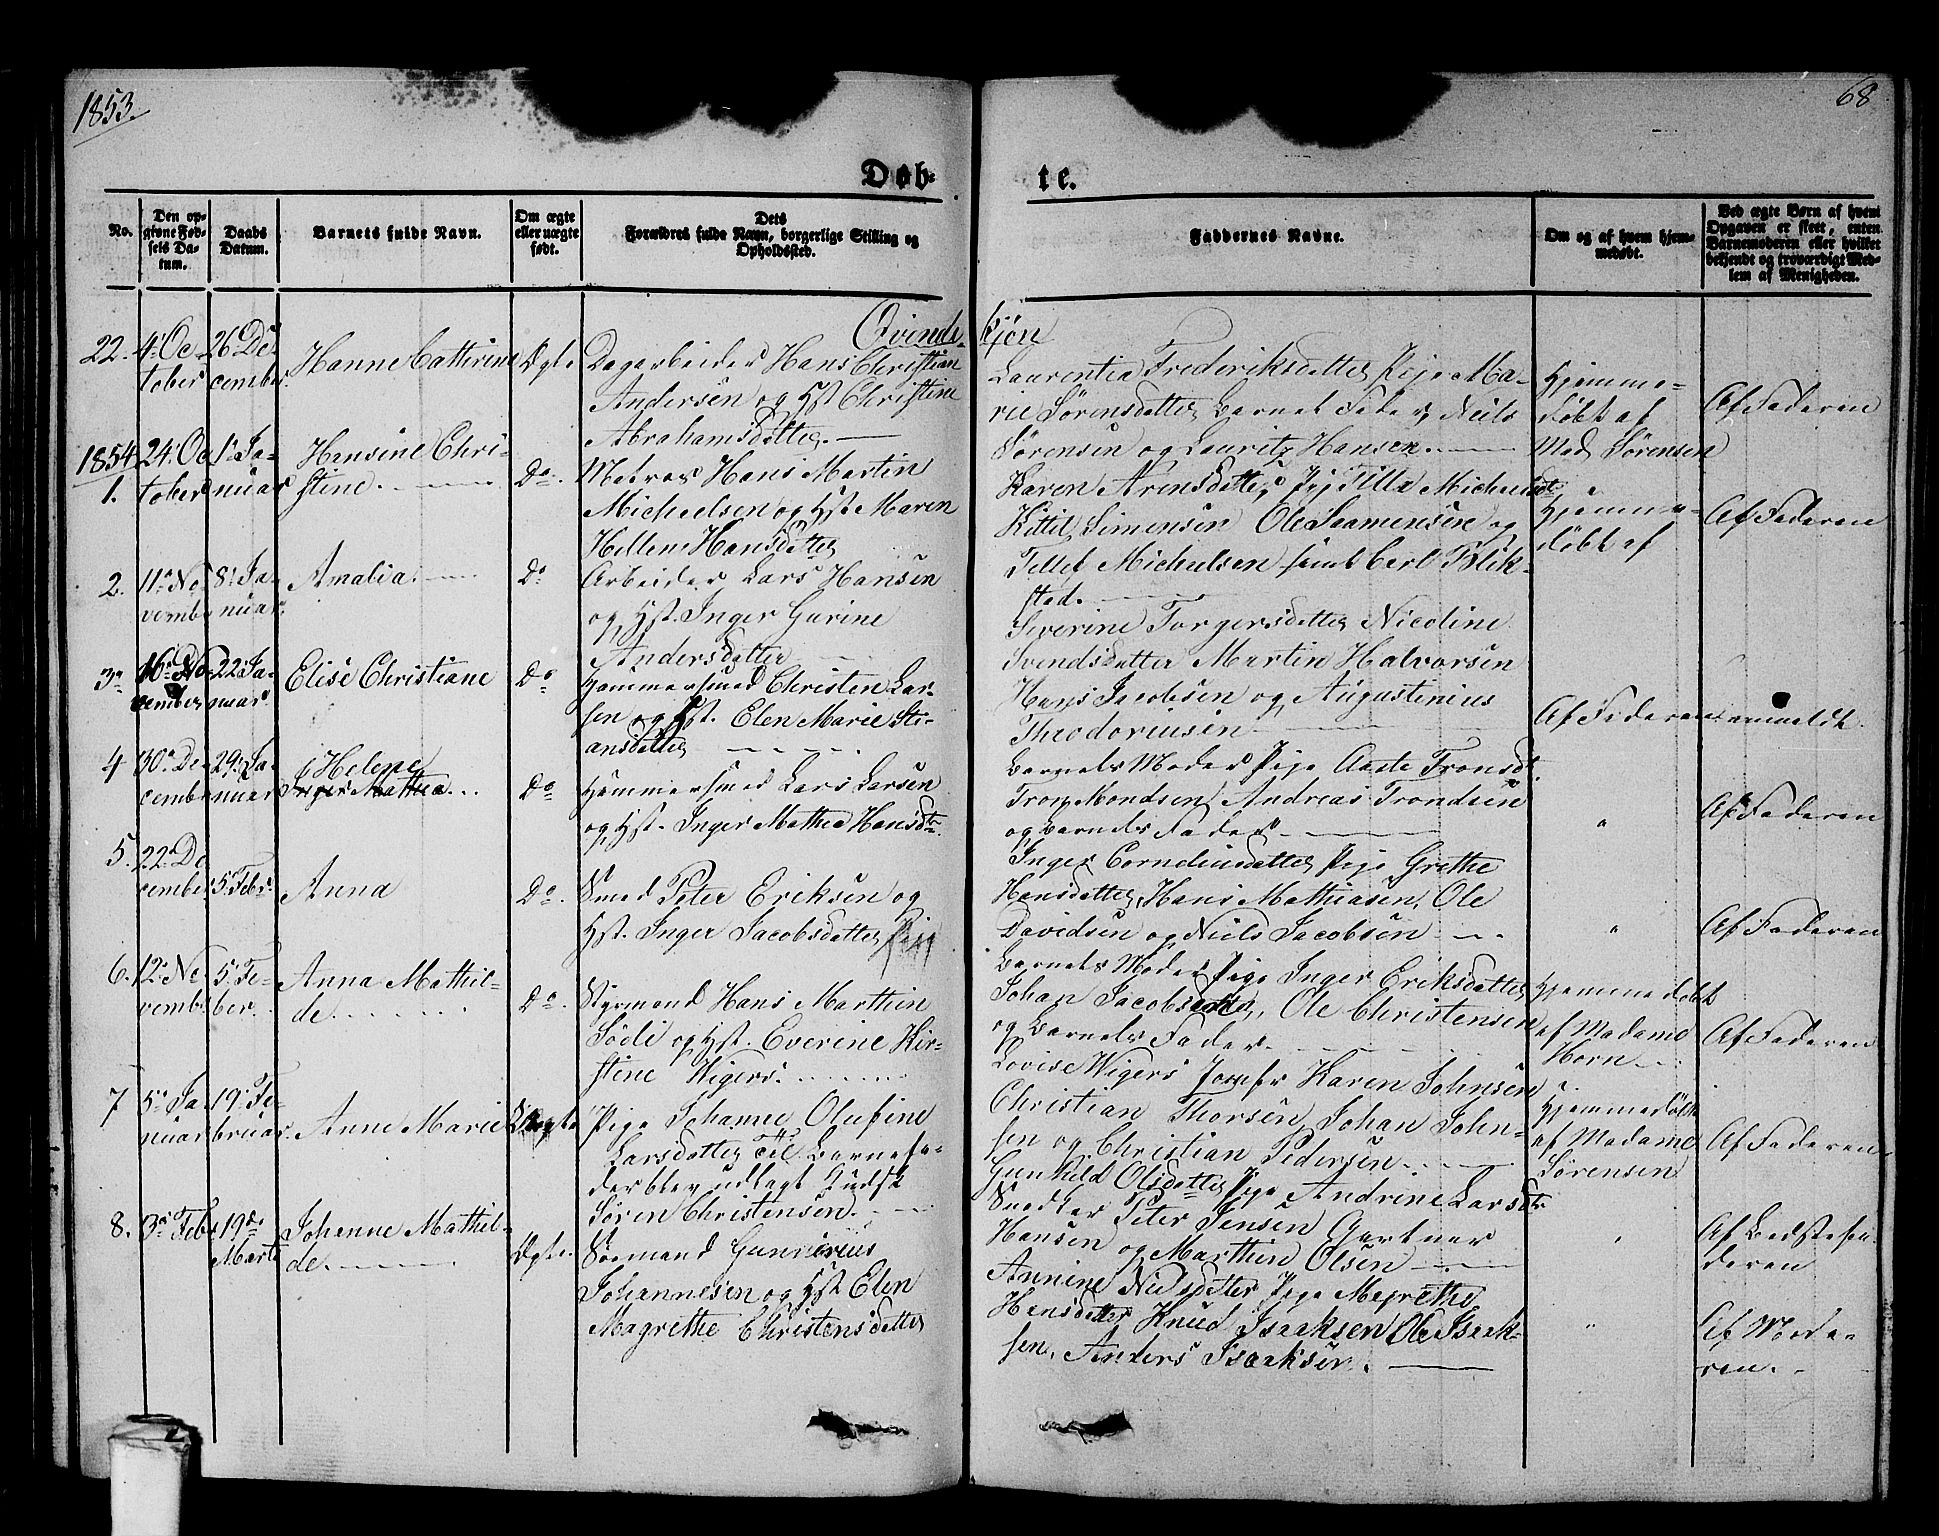 1853.
68
Døb-
te.
No.
Den op-
givne Fød-
sels Da-
tum.
Daabs
Datum.
Barnets fulde Navn.
Om ægte
eller uægte
født.
Dets
Forældres fulde Navn, borgerlige Stilling og
Opholdssted.
Faddernes Navne.
Om og af hvem hjem-
medøbt.
Ved ægte Børn af hvem
Opgaven er skeet, enten
Barnemoderen eller hvilket
bekjendt og troværdigt Med-
lem af Menigheden.
Qvinde-
kjøn
22.
4de Oc-
tober
26 De-
cember.
Hanne Cathrine
Ægte
Dagarbeider Hans Christian
Andersen og Hst Christine
Abrahamsdatter.
Laurentia Frederiksdatter Pige Ma-
rie Sørensdatter Barnets Fader, Niels
Sørensen og Lauritz Hansen.
Hjemme-
døbt af
Mad. Sørensen
Af Faderen
1854
1.
24. Oc
tober
1. Ja-
nuar
Hansine Chri-
stine.
Do.
Matros Hans Martin
Michaelsen og Hst. Maren
Hellene Hansdatter
Karen Arensdatter, Pige Tilla Michaelsdt
Kittil Simensen Ole Saamensen og
Tellef Michaelsen samt Carl Blik-
stad.
Hjemme-
døbt af
Af Faderen
2.
11. No
vembr
8. Ja-
nuar.
Amalia.
Do
Arbeider Lars Hansen
og Hst. Inger Gurine
Andersdatter
Severine Torgersdatter Nicoline
Svendsdatter Martin Halvorsen
Hans Jacobsen og Augustinius
Theodoriusen
Af Faderen anmeldt.
3.
16. No
vember
22. Ja-
nuar.
Elise Christiane
Do
Hammersmed Christen Lar-
sen og Hst. Elen Marie Sti-
ansdatter
Barnets Moder Pige Aaste Tronsdt.
Tron Mondsen, Andreas Trondsen
og Barnets Fader.
Af Faderen
4
30. De-
cember
29. Ja-
nuar
Helene
Inger Mathea
Do
Hammersmed Lars Larsen
og Hst. Inger Mathea Hansdtr.
Inger Corneliusdatter Pige Grethe
Hansdatter, Hans Mathiasen, Ole
Davidsen og Niels Jacobsen
"
Af Faderen
5.
22. De
cember
5. Febr.
Anna
Do.
Smed Peter Eriksen og
Hst. Inger Jacobsdatter
Barnets Moder Pige Inger Eriksdatter
Johan Jacobsen, Ole Christensen
og Barnets Fader.
"
6.
12. No-
vembr
5. Fe-
ber.
Anna Mathil-
de
Do.
Styrmand Hans Marthin
Sødli og Hst. Everine Kir-
stine Wigers.
Lovise Wigers Jomfr Karen Johnsen
Christian Thorsen, Johan John-
sen og Christian Pedersen.
Hjemmedøbt
af Madame
Horn
Af Faderen
7
5. Ja-
nuar
19. Fe-
bruar.
Anne Marie
Uægte
Pige Johanne Olufine
Larsdatter Til Barnefa-
der blev udlagt Gudsk
Søren Christensen.
Gunhild Olsdatter Pige Andrine Larsdtr
Snedker Peter Jensen Gartner
Hansen og Marthin Olsen
Hjemmedøbt
af Madame
Sørensen
Af Faderen
8.
3. Febr
19de
Marts
Johanne Mathil-
de.
Ægte.
Sømand Gunerius
Johannesen og Hst Elen
Magrethe Christensdatter
Annine Nielsdatter Pige Magrethe
Hansdatter Knud Isaksen Ole Isak-
sen, Anders Isaksen.
"
Af Bedstefa-
deren
"
Af Mode-
ren.